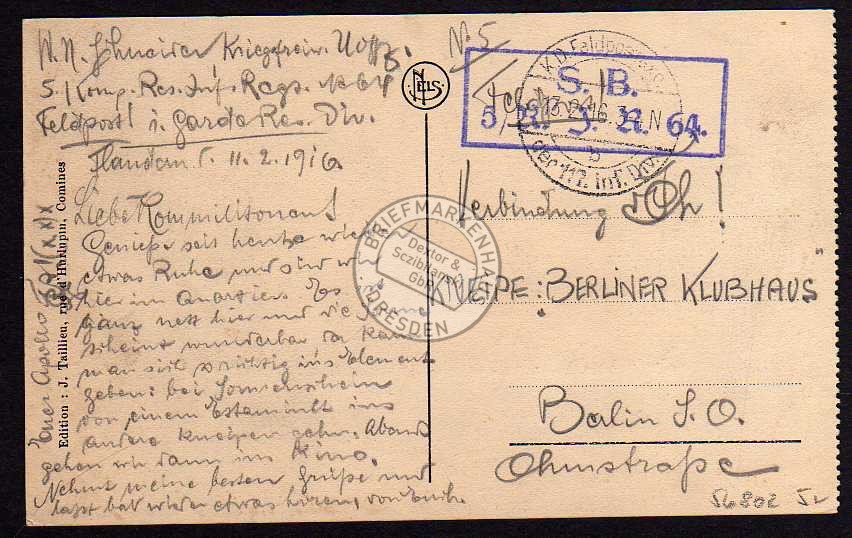 N. N. Schneider Kriegsfreiw. Uoffz.
5. Komp. Res. Inf. Regt. No 64
Feldpost i. Garde Res. Div.
Flandern 11.2.1916
Liebe Kommilitonen!
Geniesse seit heute wieder
etwas Ruhe und sind wir
hier im Quartier. Es
ganz nett hier und die Sonne
scheint wunderbar da kann
man sich so richtig ins Element
geben: bei Sonnenschein
von einem Estaminet ins
andere kneipen gehn. Abends
gehen wir dann ins Kino.
Nehmt meine besten Grüße und
laßt bald wieder etwas hören, von Euch.
Euer Apollo (x,x)x
Edition : J. Taillieu, rue d'Hurlupin, Comines
NELS
No. 5
S. B.
5. R. J. R. 64.
K.D. Feldpost
13 2 16 3-4 N
b
der 117. Inf. Div.
Verbindung
KNEIPE: „BERLINER KLUBHAUS"
Berlin S.O.
Ohmstraße
56802
BRIEFMARKENHAUS
Dextor &
Sczibilanski
GbR
DRESDEN